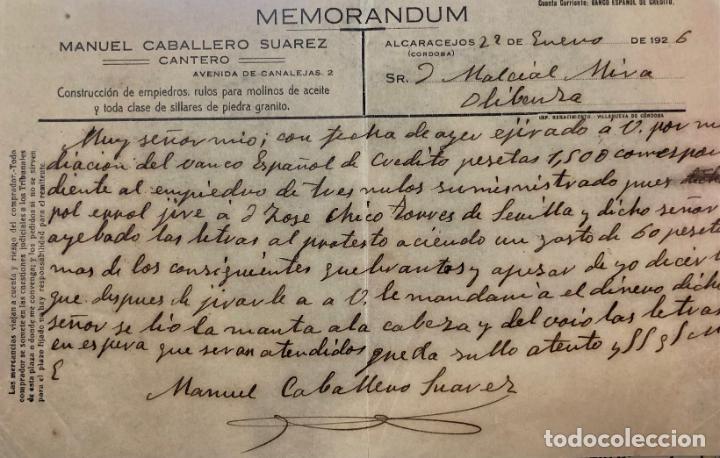 Cuenta Corriente: BANCO ESPAÑOL DE CREDITO.
MEMORANDUM
MANUEL CABALLERO SUAREZ
CANTERO
AVENIDA DE CANALEJAS, 2
Construcción de empiedros, rulos para molinos de aceite
y toda clase de sillares de piedra granito.
ALCARACEJOS 22 DE Enero DE 1926
(CORDOBA)
SR. D Malcial Mira
Olibenza
IMP. RENACIMIENTO. VILLANUEVA DE CÓRDOBA
Muy señor mio; con fecha de ayer ejirado a V. por me
diacion del vanco Español de Credito pesetas 1,500 correspon
diente al empiedro de tres rulos suministrado pues
pol errol jire á D Jose Chico Torres de Sevilla y dicho señor
ayebado las letras al protesto aciendo un gasto de 60 pesetas
mas de los consiguientes quebrantos y apesar de yo decir
que despues de jirarle a V. le mandaria el dinero dicho
señor se lio la manta ala cabeza y del voio las letras
en espera que seran atendidos queda sullo atento y SS q S M
E
Manuel Caballero Suarez
Las mercancías viajan a cuenta y riesgo del comprador.-Todo
comprador se somete en las cuestiones judiciales a los Tribunales
de esta plaza o donde me convenga; y los pedidos si no se sirven
para el plazo fijado no hay responsabilidad para el remitente.
todocoleccion